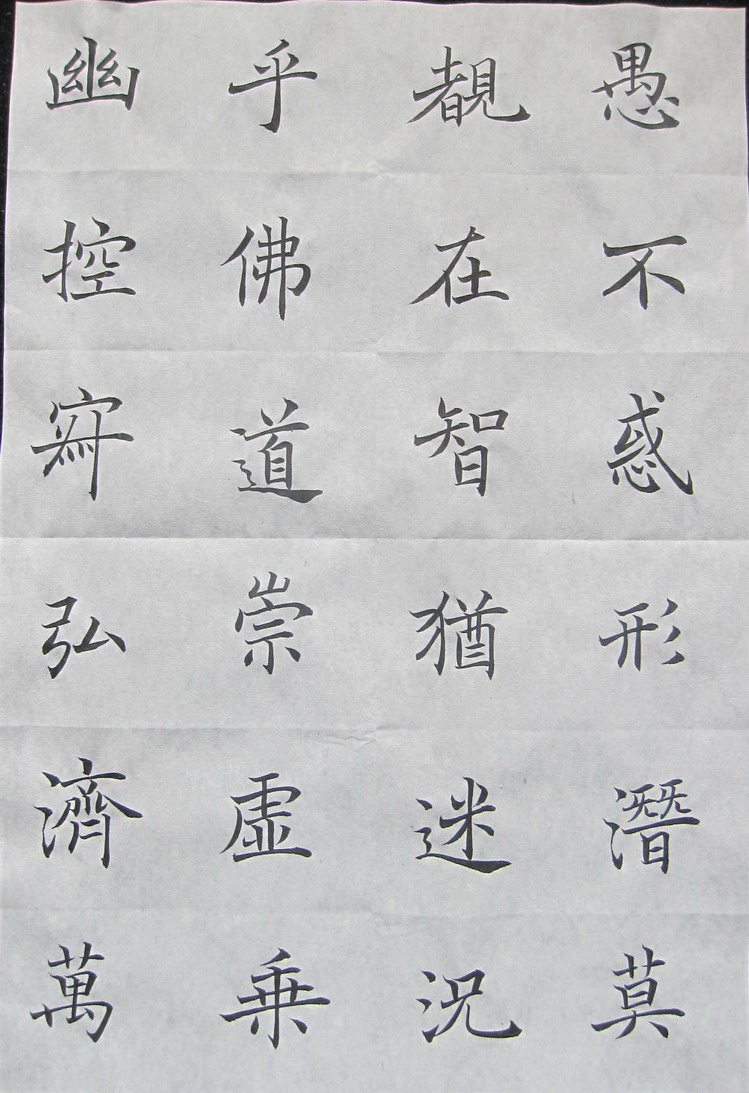 愚不惑形潛莫
覩在智猶迷況
乎佛道崇虛乘
幽控寂弘濟萬